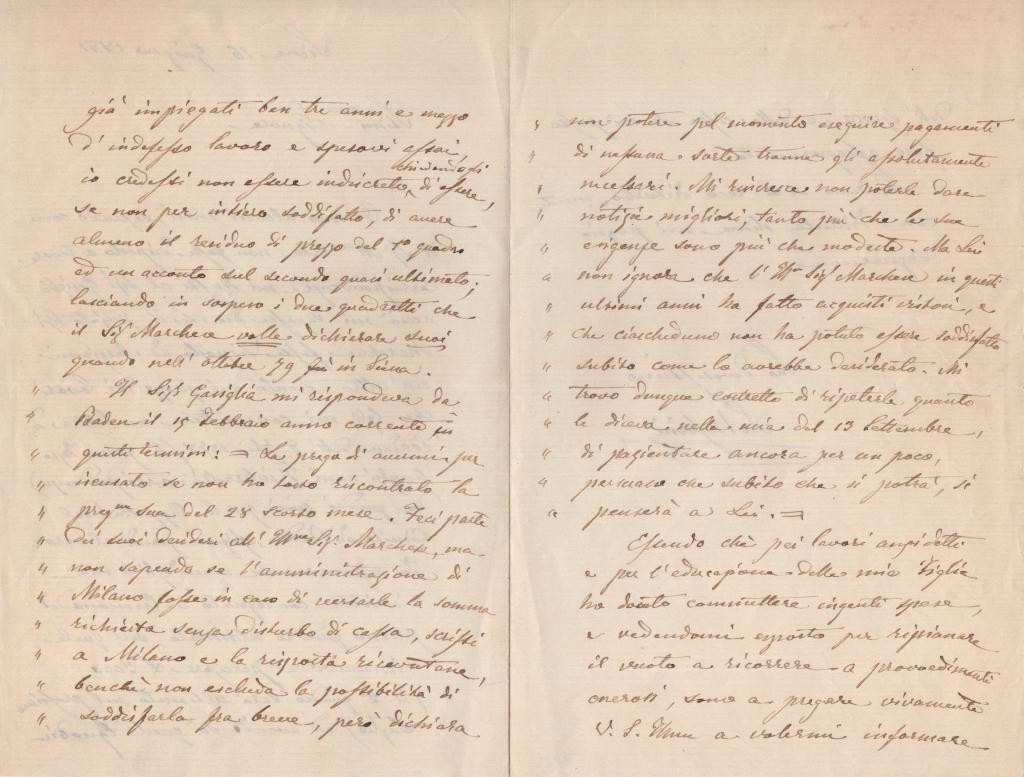 già impiegati ben tre anni e mezzo
d'indefesso lavoro e spesovi assai,
io credessi non essere indiscreto chiedendogli di essere,
se non per intiero soddisfatto, di avere
almeno il residuo di prezzo del 1º quadro
ed un acconto sul secondo quasi ultimato;
lasciando in sospeso i due quadretti che
il Sigr Marchese volle dichiarare suoi
quando nell'ottobre 79 fù in Siena.
" Il Sigr Gariglia mi rispondeva da
" Baden il 15 Febbraio anno corrente in
" questi termini: = La prego di avermi per
" iscusato se non ho tosto riscontrato la
" pregma sua del 28 scorso mese. Feci parte
" dei suoi desideri all'Illmo Sigr Marchese, ma
" non sapendo se l'amministrazione di
" Milano fosse in caso di versarle la somma
" richiesta senza disturbo di cassa, scrissi
" a Milano e la risposta ricevutane,
" benchè non escluda la possibilità di
" soddisfarla fra breve, però dichiara
" non potere pel momento eseguire pagamenti
" di nessuna sorte tranne gli assolutamente
" necessari. Mi rincresce non poterle dare
" notizie migliori, tanto più che le sue
" esigenze sono più che modeste. Ma Lei
" non ignora che l'Illmo Sigr Marchese in questi
" ultimi anni ha fatto acquisti vistosi, e
" che ciascheduno non ha potuto essere soddisfatto
" subito come lo avrebbe desiderato. Mi
" trovo dunque costretto di ripeterle quanto
" le diceva nella mia del 13 Settembre,
" di pazientare ancora per un poco,
" persuaso che subito che si potrà, si
" penserà a Lei. =
Essendo chè pei lavori anzidetti
e per l'educazione della mia Figlia
ho dovuto commettere ingenti spese,
e vedendomi esposto per ripianare
il vuoto a ricorrere a provvedimenti
onerosi, sono a pregare vivamente
V. S. Illma a volermi informare